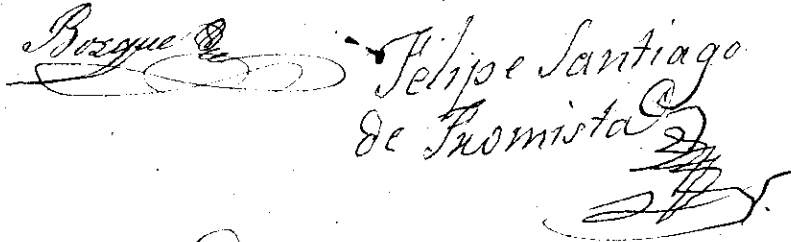 Bosque
Felipe Santiago
de Fromista